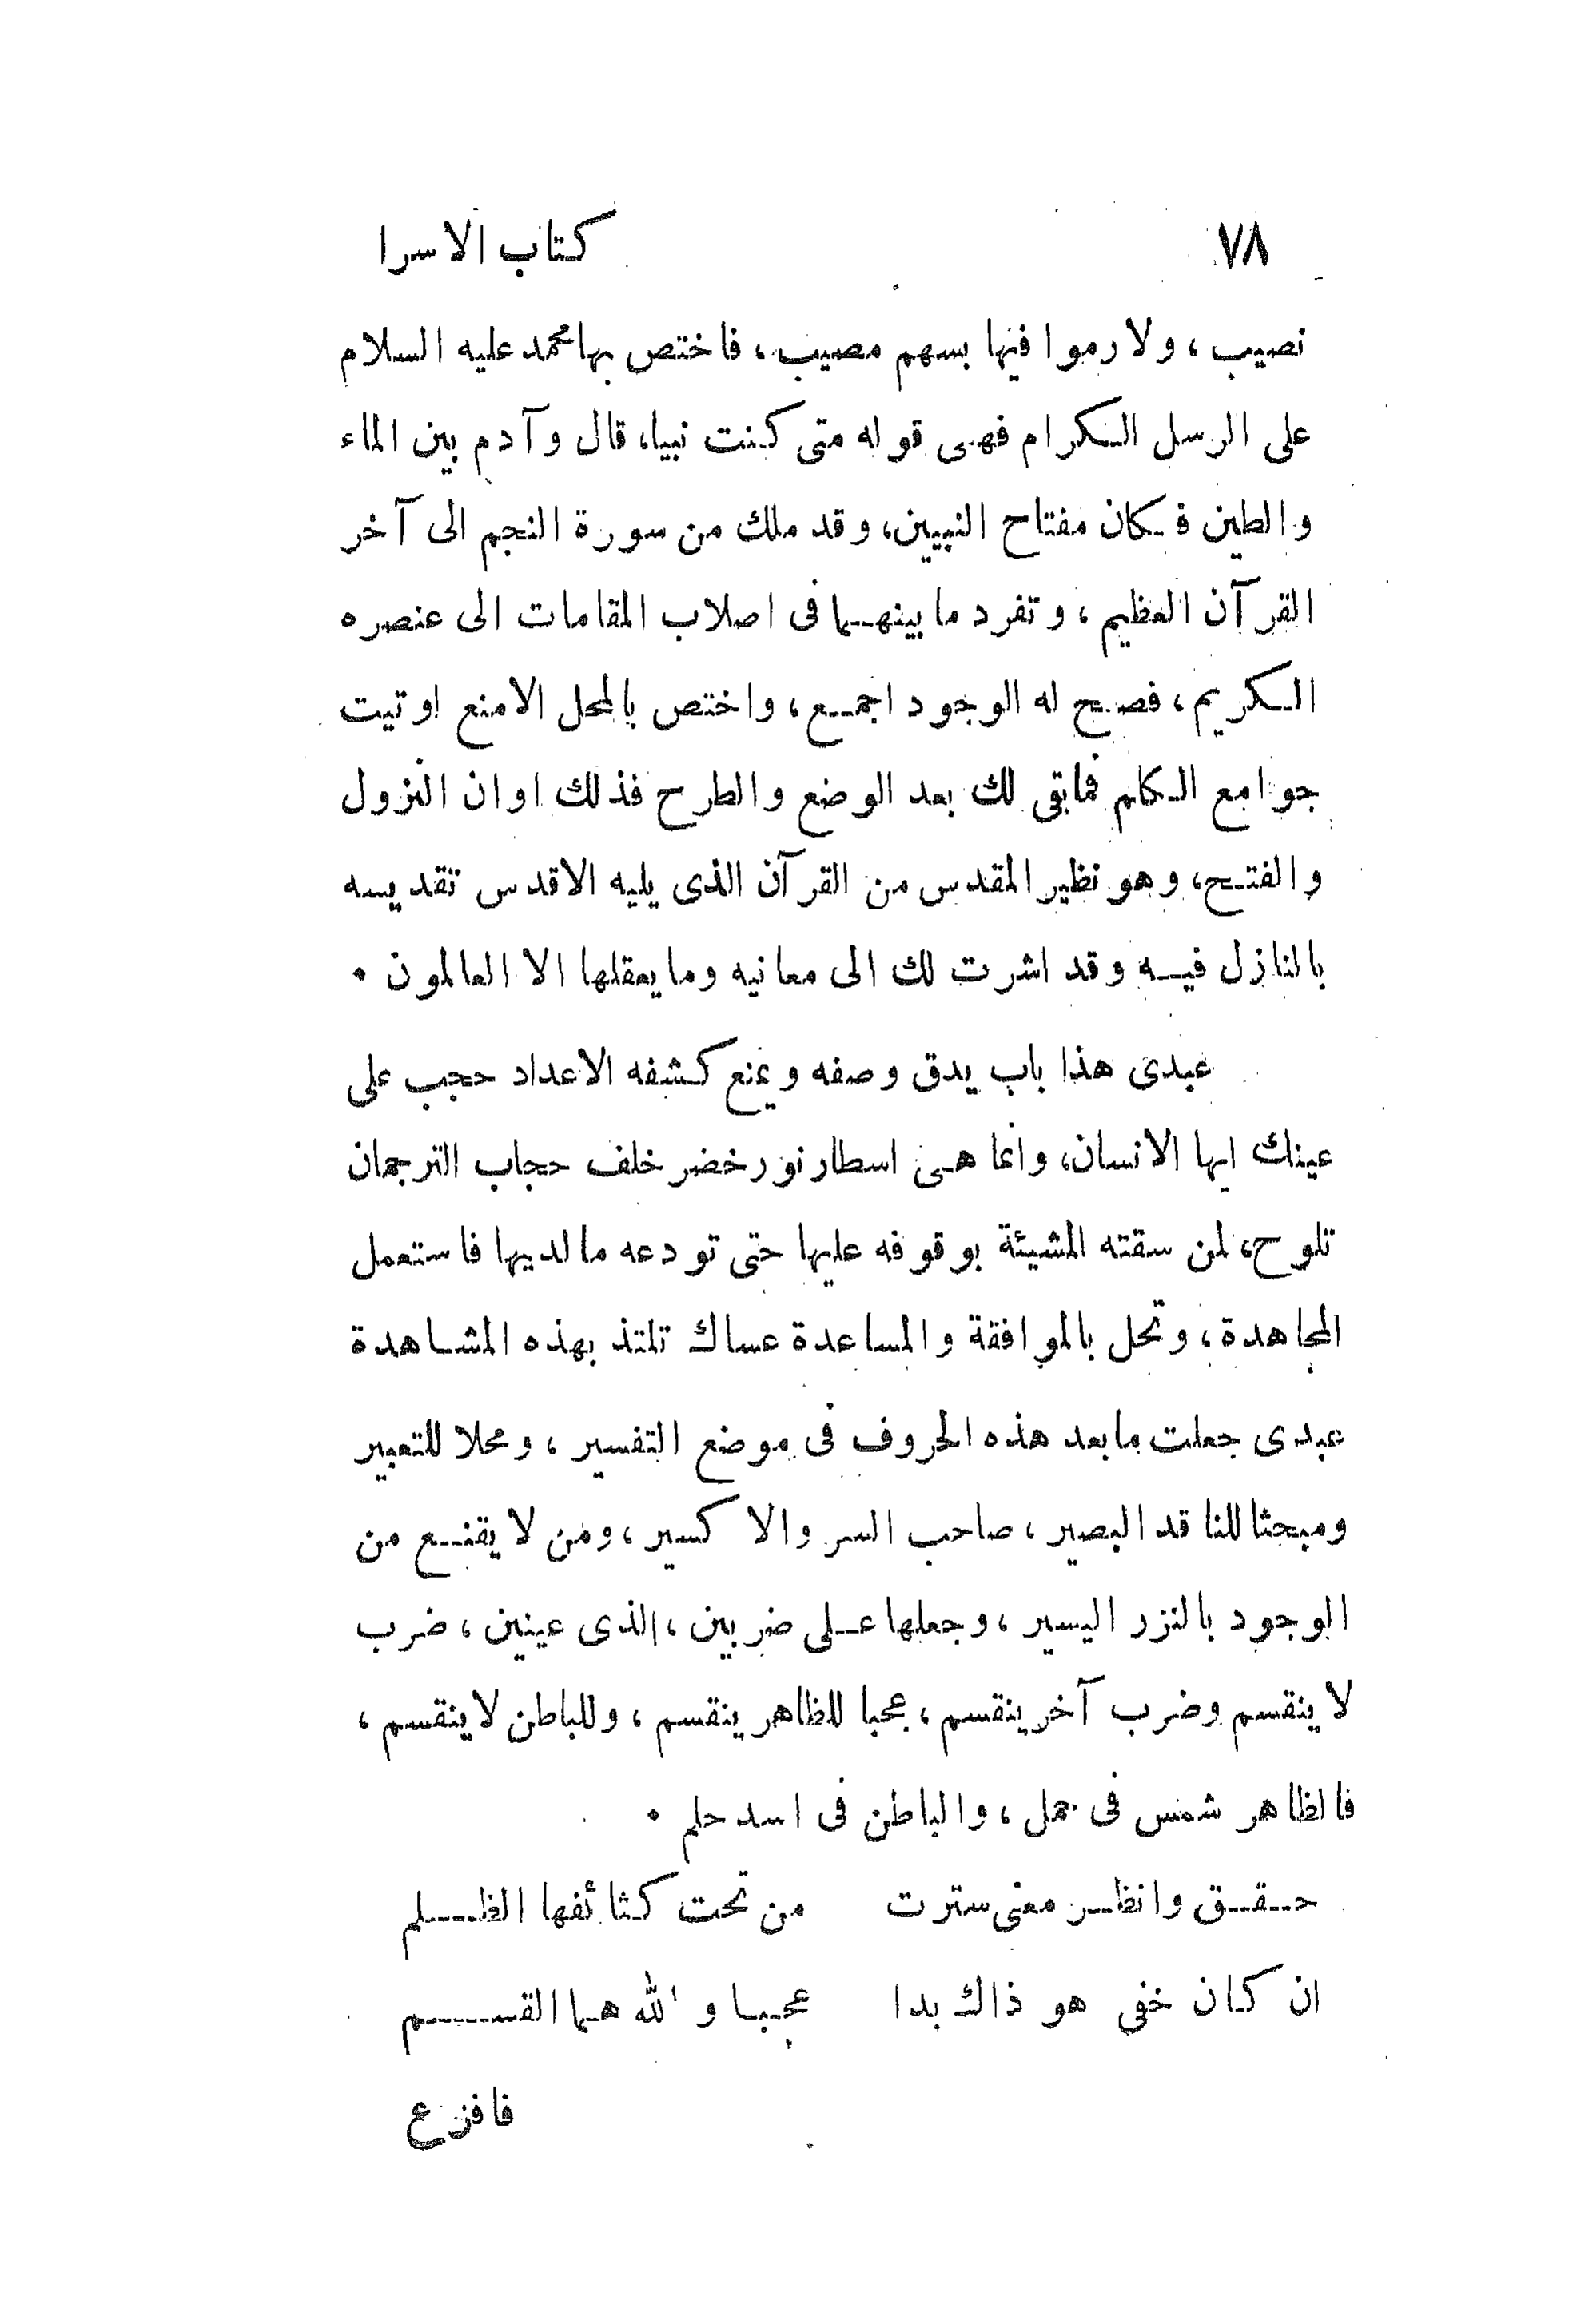 ٧٨ كتاب الاسرا
نصيب، ولا رموا فيها بسهم مصيب، فاختص بها محمد عليه السلام
على الرسل الكرام فهى قوله متى كنت نبيا، قال وآدم بين الماء
والطين فكان مفتاح النبيين، وقد ملك من سورة النجم الى آخر
القرآن العظيم، وتفرد ما بينهما فى اصلاب المقامات الى عنصره
الكريم، فصح له الوجود اجمع، واختص بالمحل الامنع اوتيت
جوامع الكلم فما بقى لك بعد الوضع والطرح فذلك اوان النزول
والفتح، وهو نظير المقدس من القرآن الذى يليه الاقدس تقديسه
بالنازل فيه وقد اشرت لك الى معانيه وما يعقلها الا العالمون ٠
عبدى هذا باب يدق وصفه ويمنع كشفه الاعداد حجب على
عينك ايها الانسان، وانما هى اسطار نور خضر خلف حجاب الترجمان
تلوح، لمن سقته المشيئة بوقوفه عليها حتى تودعه ما لديها فاستعمل
المجاهدة، وتحل بالموافقة والمساعدة عساك تلتذ بهذه المشاهدة
عبدى جعلت ما بعد هذه الحروف فى موضع التفسير، ومحلا للتعبير
ومبحثا للناقد البصير، صاحب السر والاكسير، ومن لا يقنع من
الوجود بالنزر اليسير، وجعلها على ضربين، الذى عينين، ضرب
لا ينقسم وضرب آخر ينقسم، عجبا للظاهر ينقسم، وللباطن لا ينقسم،
فالظاهر شمس فى حمل، والباطن فى اسد حلم ٠
حقق وانظر معنى سترت من تحت كثائفها الظلم
ان كان خفى هو ذاك بدا عجبا والله هما القسم
فافزع